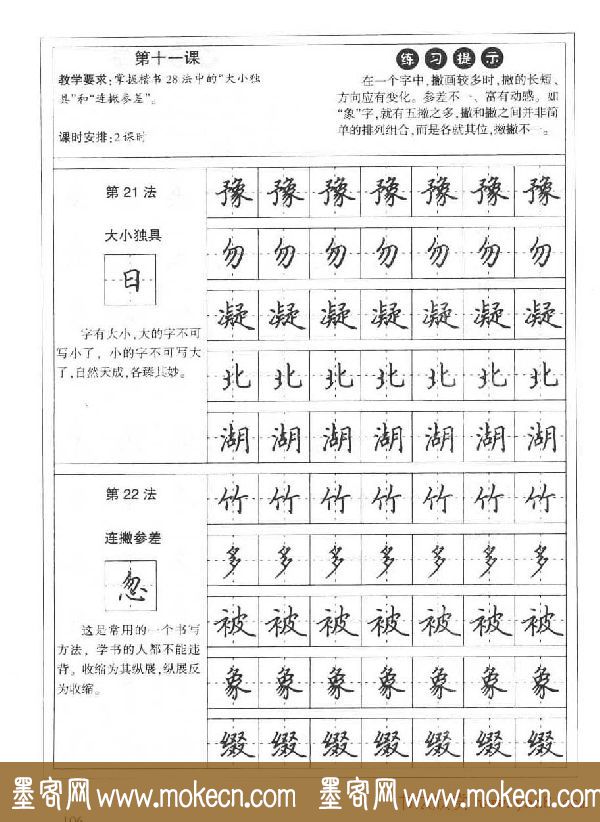 第十一课
教学要求:掌握楷书28法中的“大小独
具”和“连撇参差”。
课时安排:2课时
练习提示
在一个字中,撇画较多时,撇的长短、
方向应有变化。参差不一、富有动感。如
“象”字,就有五撇之多,撇和撇之间并非简
单的排列组合,而是各就其位,撇撇不一。
第21法
大小独具
日
字有大小,大的字不可
写小了,小的字不可写大
了,自然天成,各臻其妙。
豫豫豫豫豫豫豫
勿勿勿勿勿勿勿
凝凝凝凝凝凝凝
北北北北北北北
湖湖湖湖湖湖湖
第22法
连撇参差
忽
这是常用的一个书写
方法,学书的人都不能违
背。收缩为其纵展,纵展反
为收缩。
竹竹竹竹竹竹竹
多多多多多多多
被被被被被被被
象象象象象象象
缀缀缀缀缀缀缀
墨客网www.mokecn.com 墨客网www.mokecn.com
106